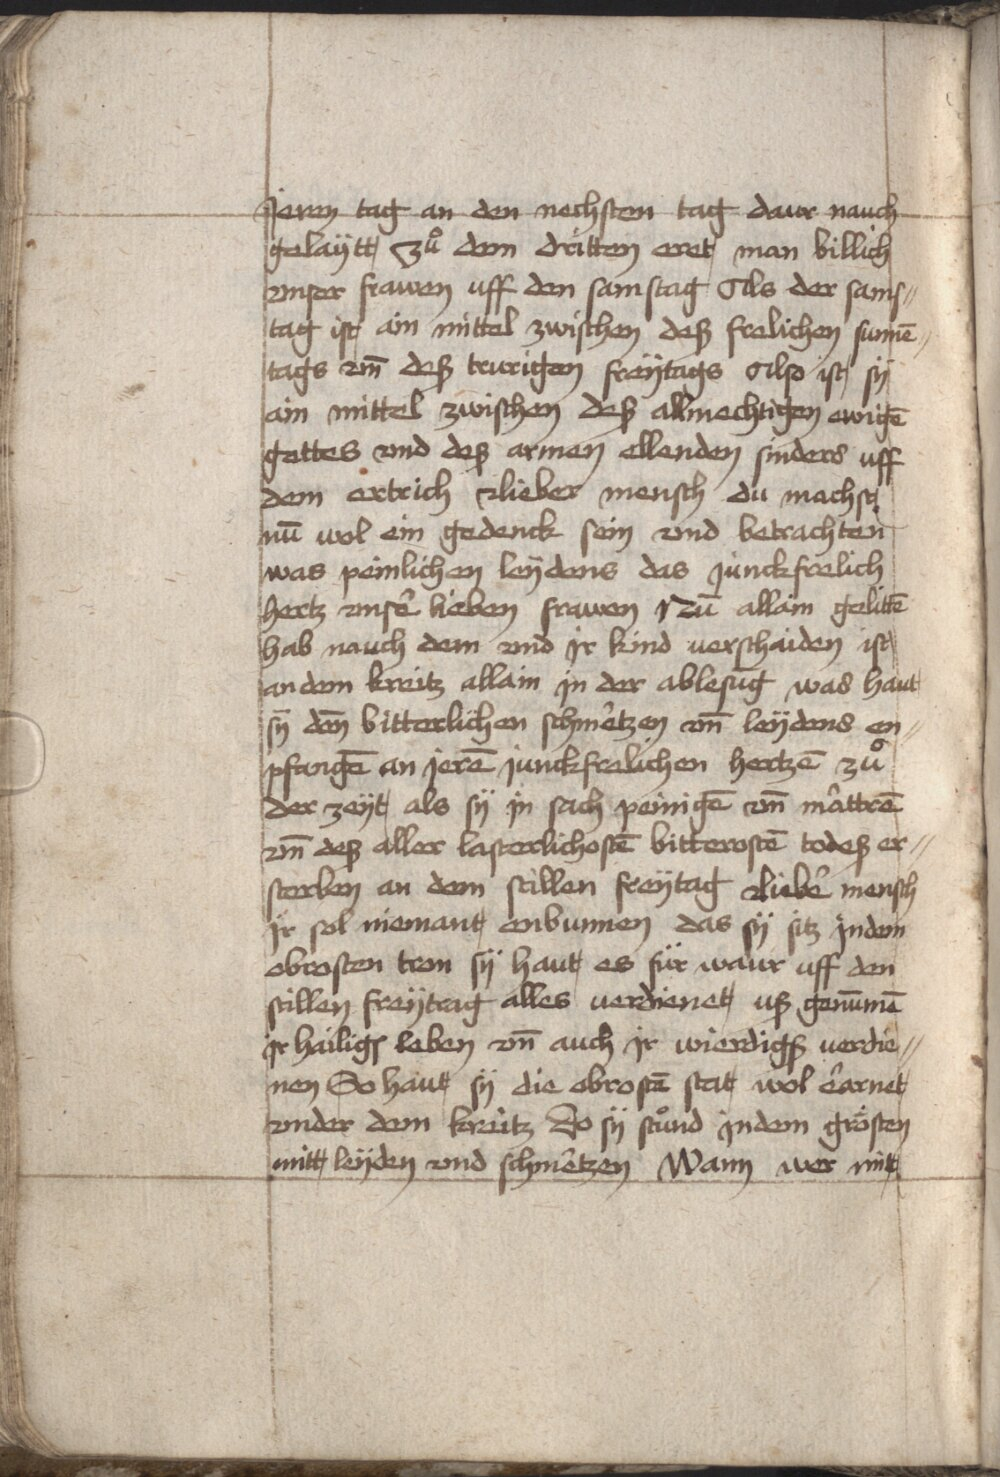 Jeren tag an den nechsten tag daur nauch
gelaÿtt Zuͦ dem dritten eret man billich
vnser frawen uff den samstag Als der sams〃
tag ist ain mittel zwischen deß frelichen sunnē〃
tags vn̄ deß trurigen freÿtags Also ist sÿ
ain mittel zwischen deß allmechtigen ewigē
gottes vnd deß armen ellenden sinders uff
dem ertrich lieber mensch du machst
nū wol ein gedenck sein vnd betrachten
was peinlichen leÿdens das junckfrelich
hertz vnsē lieben frawen Nū allain gelittē
hab nauch dem vnd jr kind verschaiden ist
an dem kreitz allain jn der ablesūg was haut
sÿ den̄ bitterlichen schmêtzen vn̄ leÿdens en〃
pfangē an jerē junckfrelichen hertzē zuͦ
der zeÿt als sÿ jn sach peinigē vn̄ mâttrē
vn̄ deß aller lasterlichostē bitterostē todeß er〃
sterben an dem stillen freÿtag liebê mensch
jr sol niemant enbunnen das sÿ sitz jn dem
obrosten tron sÿ haut es für waur uff den
stillen freÿtag alles verdienet uß genūmē
jr hailigs leben vn̄ auch jr wierdigß verdie〃
nen So haut sÿ die obrostē stat wol êarnet
vnder dem kreitz Do sÿ stuͦnd jn dem grösten
mitt leÿden vnd schmêtzen Wann wer mitt